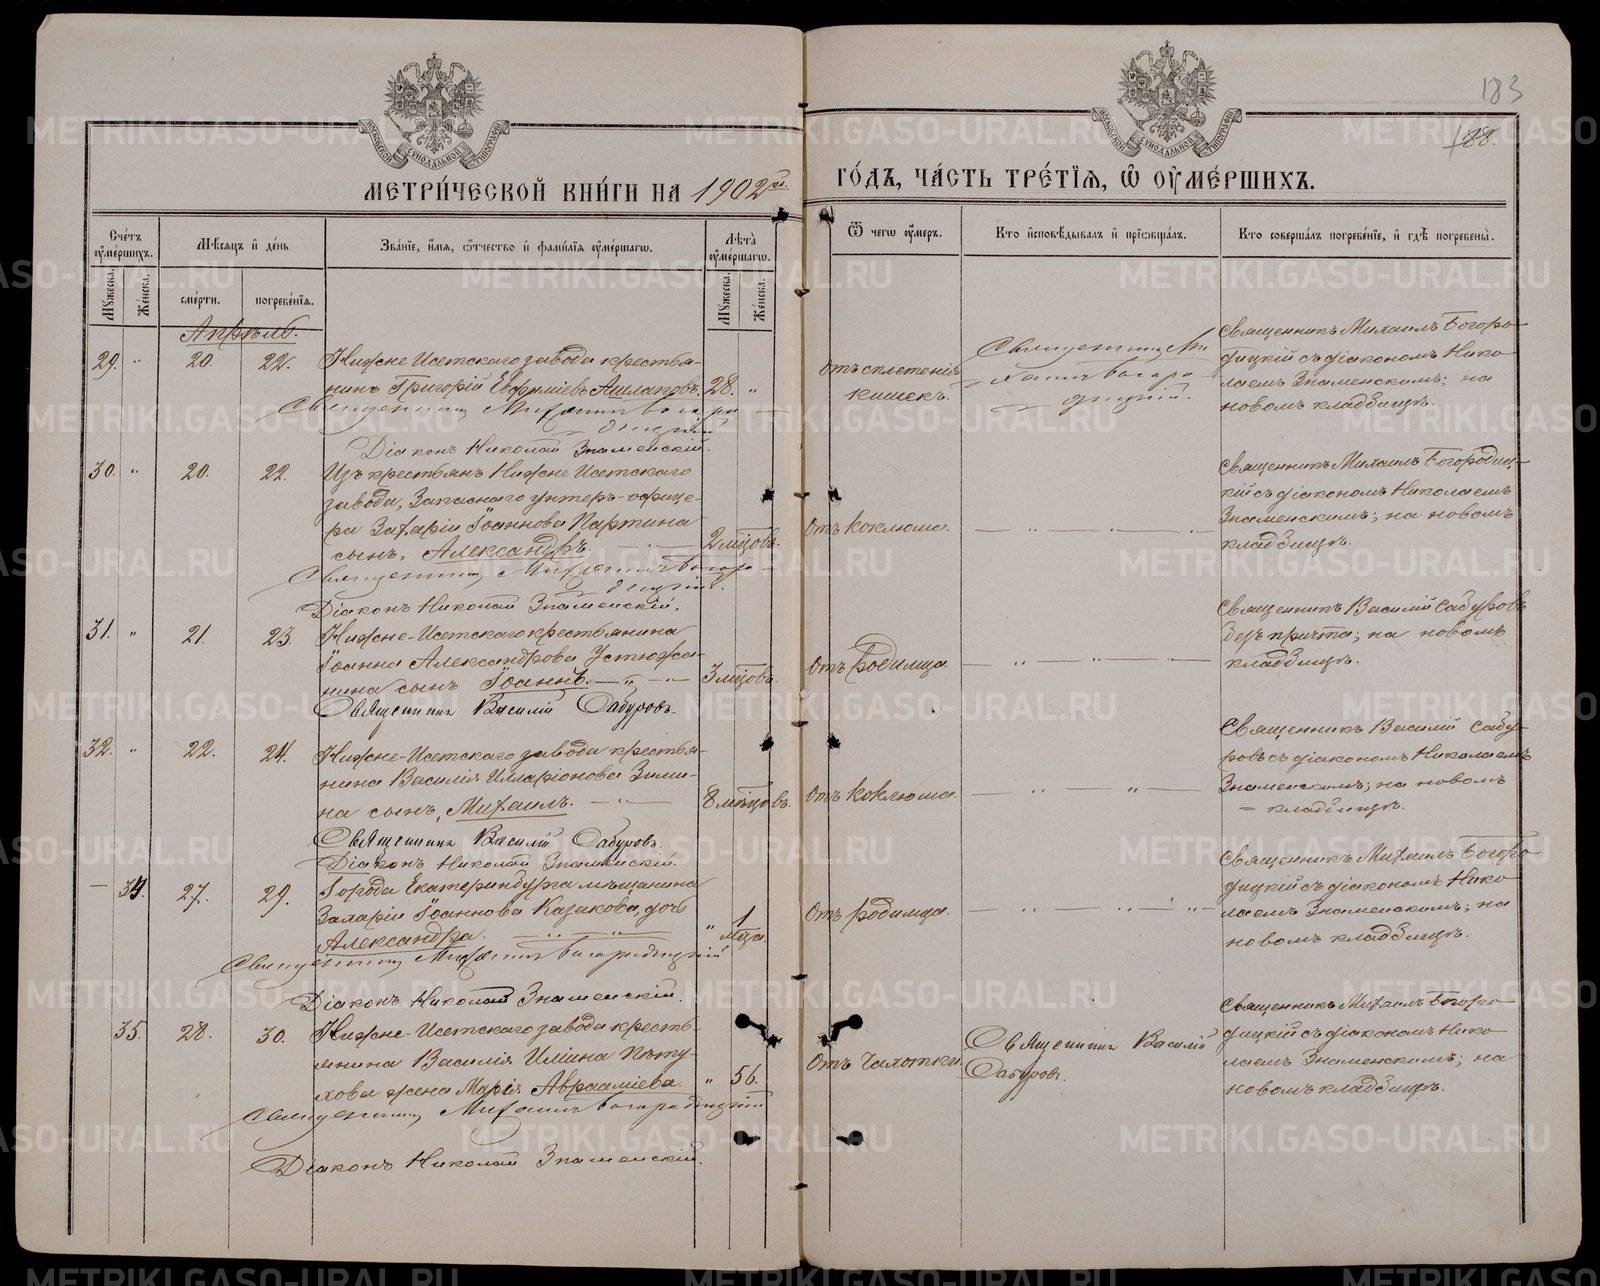 183
188.
МОСКОВСКОЙ СѴНОДАЛЬНОЙ ТИПОГРАФІИ
МОСКОВСКОЙ СѴНОДАЛЬНОЙ ТИПОГРАФІИ
МЕТРИ́ЧЕСКОЙ КНИ́ГИ НА 1902й.
ГО́ДЪ, ЧА́СТЬ ТРЕ́ТІѦ, Ѡ ОУМЕ́РШИХЪ.
Сче́тъ оуме́ршихъ.
Мꙋжеска.
Же́нска.
Мѣ́сѧцъ и де́нь
сме́рти.
погребе́нїѧ.
Зва́нїе, и́мѧ, ѻ́тчество и фами́лїѧ оуме́ршагѡ.
Лѣ́та оуме́ршагѡ.
Мꙋжеска.
Же́нска.
Ѿ чегѡ оу́меръ.
Кто и҆сповѣ́дывалъ и прїѡбща́лъ.
Кто соверша́лъ погребе́нїе, и гдѣ̀ погребены̀.
Апрѣль.
29. " 20. 22.
Нижне Исетскаго завода крестья-
нинъ Григорій Евфиміевъ Ашлаповъ.
28. "
Священникъ Михаилъ Богоро-
дицкій
Діаконъ Николай Знаменскій.
отъ сплетенія
кишекъ.
Священникъ Ми
хаилъ Богоро
дицкій.
Священникъ Михаилъ Богоро-
дицкій съ діакономъ Нико-
лаемъ Знаменскимъ; на
новомъ кладбищѣ.
30. " 20. 22.
Изъ крестьянъ Нижне Исетскаго
завода, Запаснаго унтеръ-офице-
ра Захаріи Іоаннова Партина
сынъ, Александръ.
2 мѣсцовъ.
Священникъ Михаилъ Богоро-
дицкій.
Діаконъ Николай Знаменскій.
Отъ коклюша.
Священникъ Михаилъ Богородиц-
кій съ діакономъ Николаемъ
Знаменскимъ; на новомъ
кладбищѣ.
31. " 21. 23.
Нижне-Исетскаго крестьянина
Іоанна Александрова Устюжа-
нина сынъ Іоаннъ.
3 мѣсцова
Священникъ Василій Сабуровъ.
Отъ Родимца.
Священникъ Василій Сабуровъ
безъ причта; на новомъ
кладбищѣ.
32. " 22. 24.
Нижне-Исетскаго завода крестья-
нина Василія Илларіонова Зими-
на сынъ, Михаилъ.
8 мѣсцовъ.
Священникъ Василій Сабуровъ.
Діаконъ Николай Знаменскій.
Отъ коклюша.
Священникъ Василій Сабу-
ровъ съ діакономъ Николаемъ
Знаменскимъ; на новомъ
кладбищѣ.
— 34. 27. 29.
Города Екатеринбурга мѣщанина
Захаріи Іоаннова Казакова, дочь
Александра.
" 1 мѣсца.
Священникъ Михаилъ Богородицкій
Діаконъ Николай Знаменскій.
Отъ родимца.
Священникъ Михаилъ Богоро-
дицкій съ діакономъ Нико-
лаемъ Знаменскимъ; на
новомъ кладбищѣ.
35. 28. 30.
Нижне-Исетскаго завода кресть-
янина Василія Иліина Пѣту-
хова жена Марія Авраамiева.
" 56.
Священникъ Михаилъ Богородицкій
Діаконъ Николай Знаменскій.
Отъ Чахотки.
Священникъ Василій
Сабуровъ.
Священникъ Михаилъ Богоро-
дицкій съ діакономъ Нико-
лаемъ Знаменскимъ; на
новомъ кладбищѣ.
METRIKI.GASO-URAL.RU